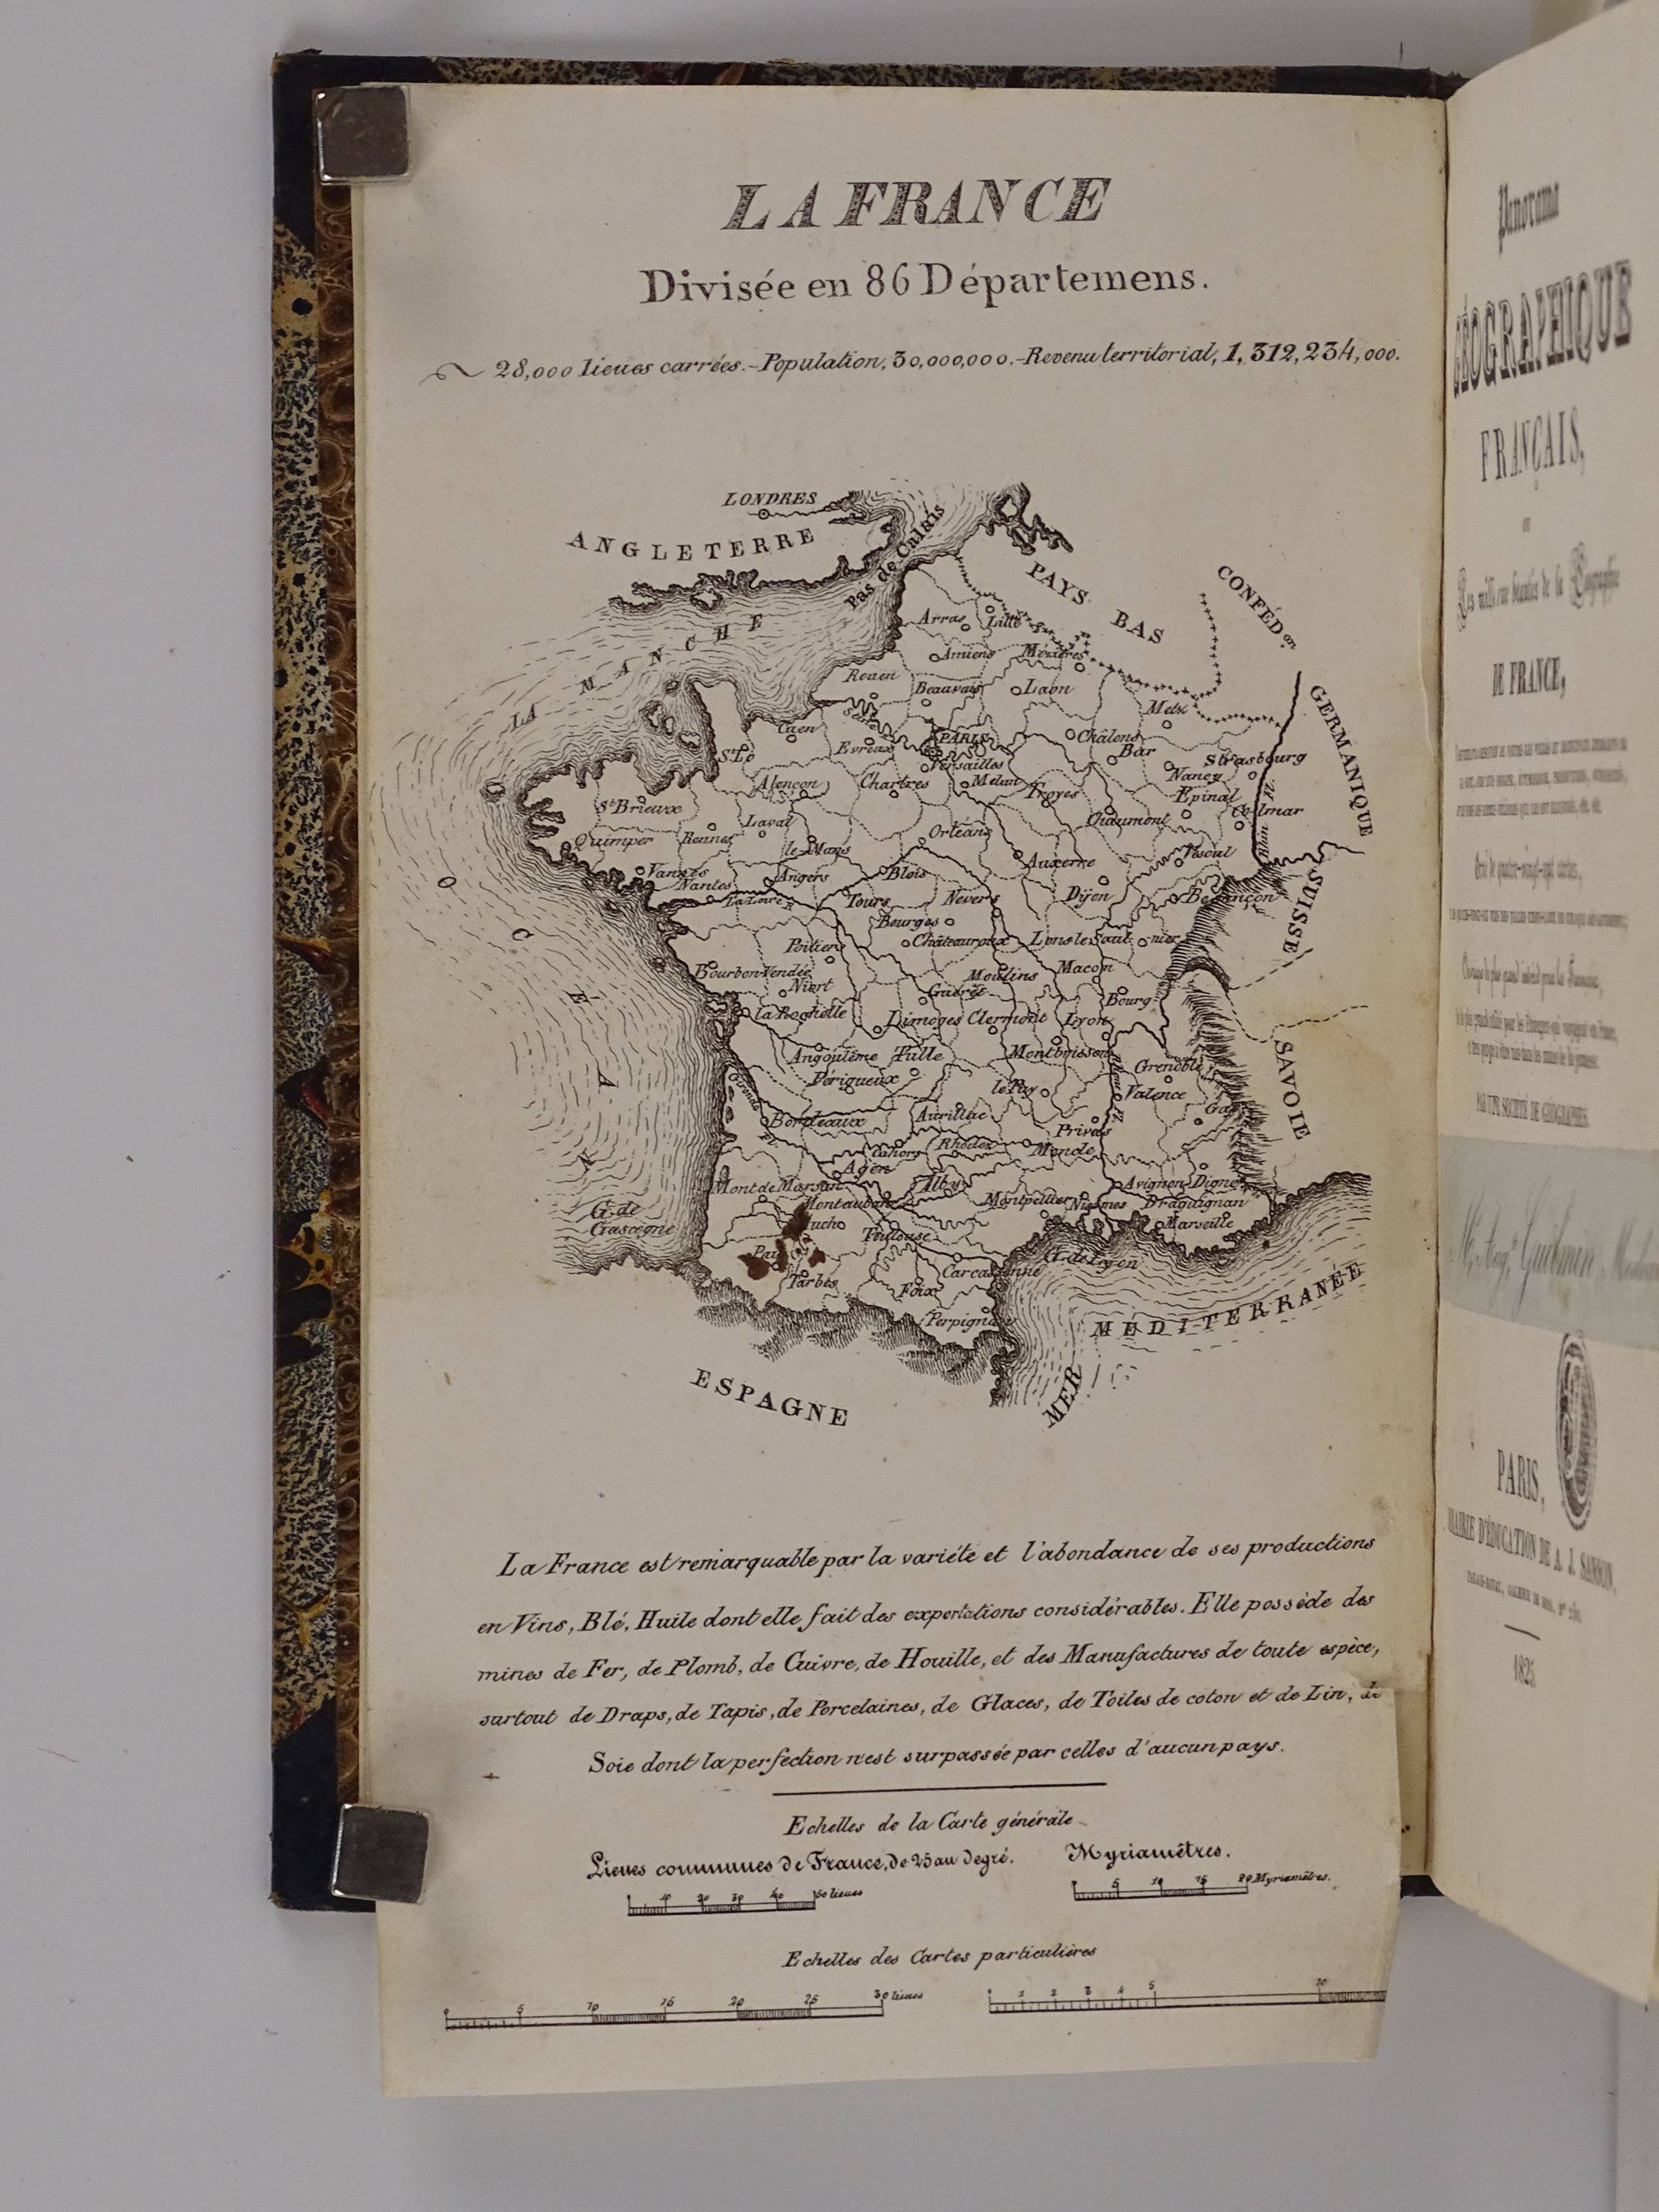 LA FRANCE
Divisée en 86 Départemens.
28,000 lieues carrées.-Population, 30,000,000.-Revenu territorial, 1,312,234,000.
LONDRES
ANGLETERRE
Pas de Calais
PAYS BAS
CONFÉD.on
GERMANIQUE
LA MANCHE
Arras
Lille
Amiens
Mézières
Rouen
Beauvais
Laon
Metz
Caen
Seine
PARIS
Châlons
Bar
St Lô
Evreux
Versailles
Strasbourg
Nancy
Alençon
Chartres
Melun
Troyes
Epinal
Colmar
St Brieux
Laval
Chaumont
Quimper
Rennes
le Mans
Orléans
Auxerre
Vesoul
Rhin
Vannes
Nantes
Angers
Blois
La Loire
Tours
Nevers
Dijon
Besançon
SUISSE
Bourges
Châteauroux
Lons le Saulnier
Poitiers
Bourbon Vendée
Niort
Moulins
Macon
Guéret
Bourg
la Rochelle
Limoges
Clermont
Lyon
OCÉAN
Angoulême
Tulle
Montbrisson
Périgueux
Grenoble
SAVOIE
le Puy
Valence
Gap
Bordeaux
Aurillac
Privas
Cahors
Rhodez
Mende
Agen
Mont de Marsan
Alby
Avignon
Digne
Montauban
Montpellier
Nismes
Draguignan
G. de Gascogne
Auch
Toulouse
Marseille
Pau
G. de Lyon
Tarbes
Foix
Carcassonne
Perpignan
MER MÉDITERRANÉE
ESPAGNE
La France est remarquable par la variéte et l'abondance de ses productions
en Vins, Blé, Huile dont elle fait des exportations considérables. Elle possède des
mines de Fer, de Plomb, de Cuivre, de Houille, et des Manufactures de toute espèce,
surtout de Draps, de Tapis, de Porcelaines, de Glaces, de Toiles de coton et de Lin, de
Soie dont la perfection n'est surpassée par celles d'aucun pays.
Echelles de la Carte générale
Lieues communes de France, de 25 au degré.
Myriamêtres.
10 20 30 40 50 lieues
5 10 15 20 Myriamêtres.
Echelles des Cartes particulières
0 5 10 15 20 25 30 lieues
1 2 3 4 5 10
Panorama
GÉOGRAPHIQUE
FRANÇAIS,
ou
Les mille une beautés de la
DE FRANCE,
PAR UNE SOCIÉTÉ DE GÉOGRAPHES.
PARIS,
D'ÉDUCATION DE A. J. SANSON,